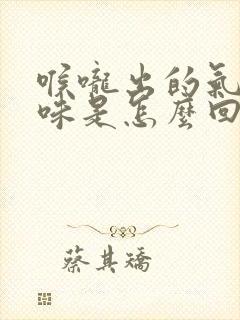 喉嚨出的氣
味是怎麼回
蔡其矯